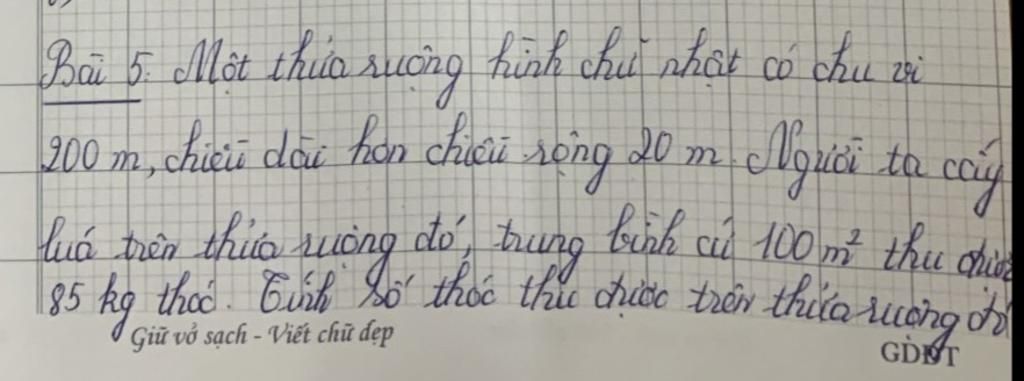 Bài 5. Một thửa ruộng hình chữ nhật có chu vi
200 m, chiều dài hơn chiều rộng 20 m. Người ta cấy
luá trên thửa ruộng đó, trung bình cứ 100 m² thu được
85 kg thoć. Tính số thóc thu được trên thửa ruộng đó
Giữ vở sạch - Viết chữ đẹp
GDĐT